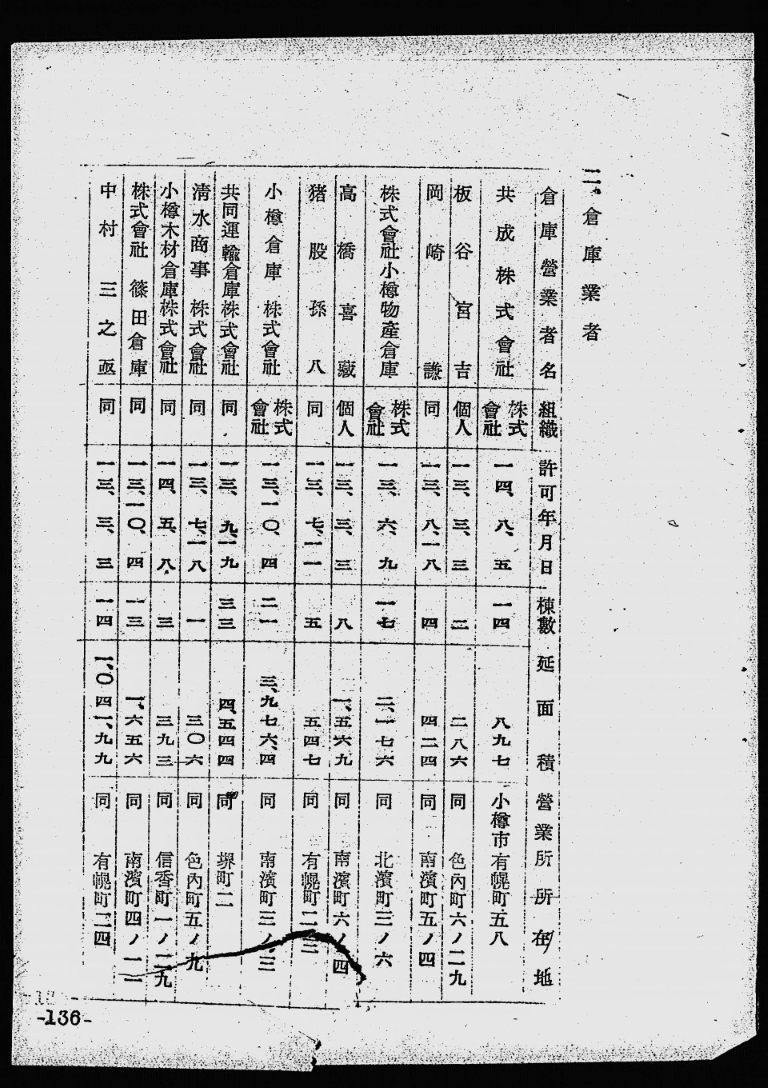 二、倉庫業者
倉庫營業者名 組織 許可年月日 棟數 延面積 營業所所在地
共成株式會社 株式會社 一四、八、五 一四 八九七 小樽市有幌町五八
板谷宮吉 個人 一三、三、三 二 二八六 同 色內町六ノ二九
岡崎謙 同 一三、八、一八 四 四二四 同 南濱町五ノ四
株式會社小樽物產倉庫 株式會社 一三、六、九 一七 二、一七六 同 北濱町三ノ六
高橋喜藏 個人 一三、三、三 八 一、五六九 同 南濱町六ノ四
猪股孫八 同 一三、七、一一 五 五四七 同 有幌町二三
小樽倉庫株式會社 株式會社 一三、一〇、四 二一 三、九七六、四 同 南濱町三ノ三
共同運輸倉庫株式會社 同 一三、九、一九 三三 四、五四四 同 堺町二
淸水商事株式會社 同 一三、七、一八 一 三〇六 同 色內町五ノ九
小樽木材倉庫株式會社 同 一四、五、八 三 三九三 同 信香町一ノ二九
株式會社篠田倉庫 同 一三、一〇、四 一三 一、六五六 同 南濱町四ノ一一
中村三之亟 同 一三、三、三 一四 一、〇四一、九九 同 有幌町二四
-136-